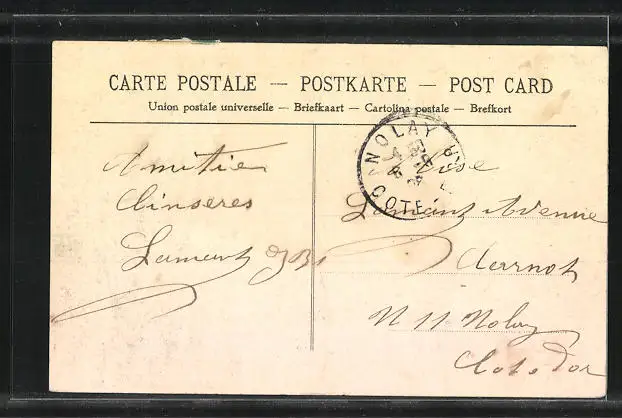 CARTE POSTALE — POSTKARTE — POST CARD
Union postale universelle — Briefkaart — Cartolina postale — Brefkort
Amitiés
Sincères
Lamant
NOLAY
COTE-D'OR
Lamant Avenue
Carnot
N 11 Nolay
Cote d'or